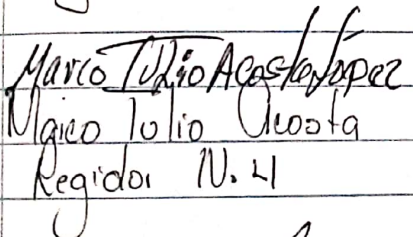 Marco Tulio Acosta López
Marco Tulio Acosta
Regidor N. 4